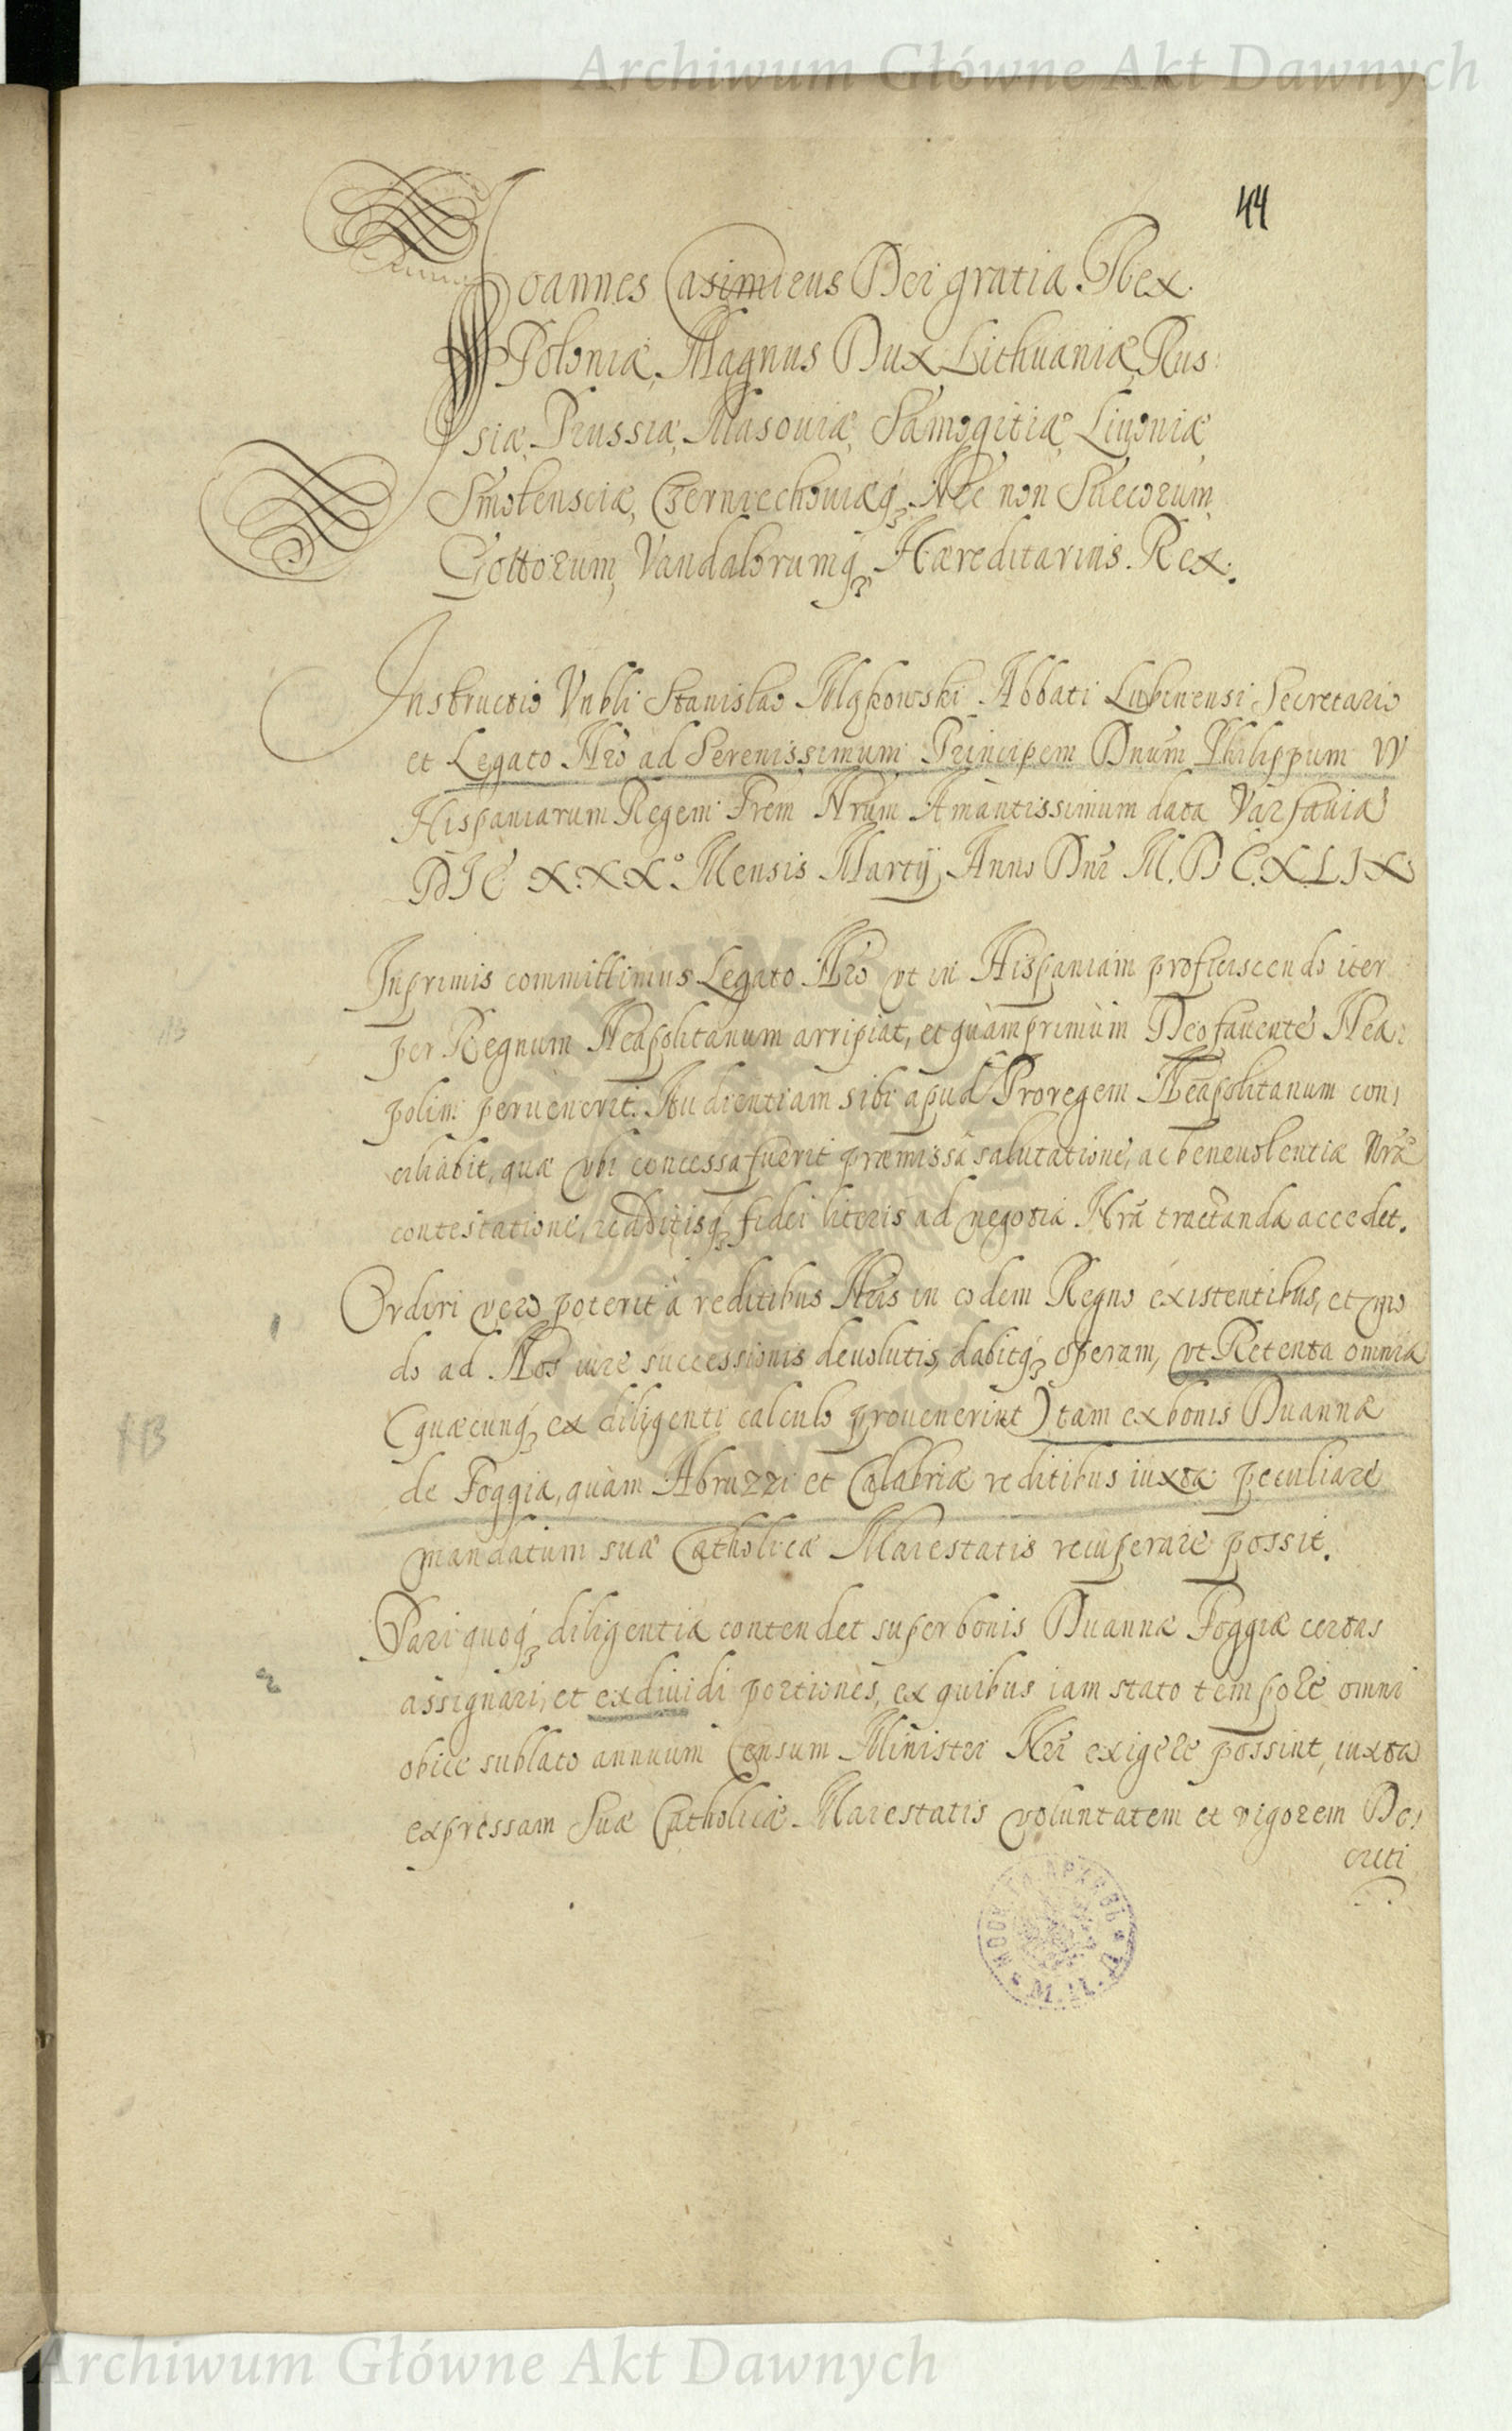 Archiwum Główne Akt Dawnych
44
Joannes Casimirus Dei gratia Rex
Poloniæ, Magnus Dux Lithuaniæ, Rus:
siæ, Prussiæ, Masouiæ, Samogitiæ, Liuoniæ,
Smolensciæ, Czerniechouiæq3. Nec non Suecorum,
Gottorum, Vandalorumq3, Hæreditarius Rex.
Instructio Vnbli Stanislao Mąkowski Abbati Lubinensi Secretario
et Legato Nr̃o ad Serenissimum Principem Dnum̃ Philippum IV
Hispaniarum Regem Frem Nrum̃ Amantissimum data Varsauiæ
DIE XXX° Mensis Martij, Anno Dnĩ M.D C.X.L.I X
Inprimis committimus Legato Nr̃o vt in Hispaniam proficiscendo iter
per Regnum Neapolitanum arripiat, et quàm primùm Deo fauente Nea:
polim peruenerit. Audientiam sibi apud Proregem Neapolitanum con:
ciliabit, quæ vbi concessa fuerit præmissâ salutatione, ac beneuolentiæ Nræ̃
contestatione, redditisq3 fidei literis ad negotia Nrã tractanda accedet.
Ordiri vero poterit à reditibus Nr̃is in eodem Regno existentibus, et mo
do ad Nos iure successionis deuolutis, dabitq3 operam, vt Retenta omnia
(quæcunq3 ex diligenti calculo prouenerint) tam ex bonis Duannæ
de Foggia, quàm Abruzzi et Calabriæ reditibus iuxta peculiare
mandatum suæ Catholicæ Maiestatis recuperare possit.
Pari quoq3 diligentia contendet super bonis Duannæ Foggiæ certas
2
assignari, et exdiuidi portiones, ex quibus iam stato tempore omni
obice sublato annuum Censum Ministri Nr̃i exigere possint, iuxta
expressam Suæ Catholicæ Maiestatis voluntatem et vigorem De:
creti
Archiwum Główne Akt Dawnych